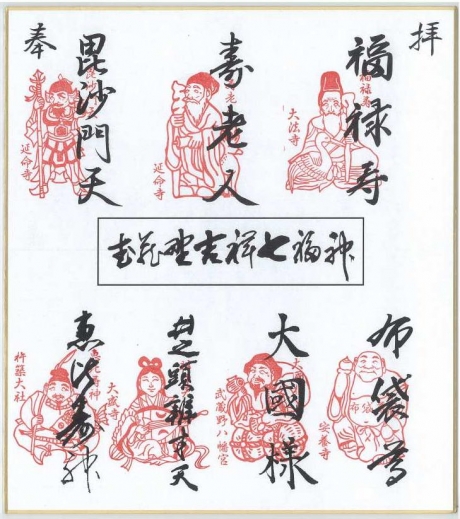 奉
拝
福禄寿
福禄寿
大法寺
寿老人
延命寺
毘沙門天
延命寺
武蔵野吉祥七福神
布袋尊
布袋
安養寺
大國様
武蔵野八幡宮
井之頭辨才天
大盛寺
恵比寿神
杵築大社